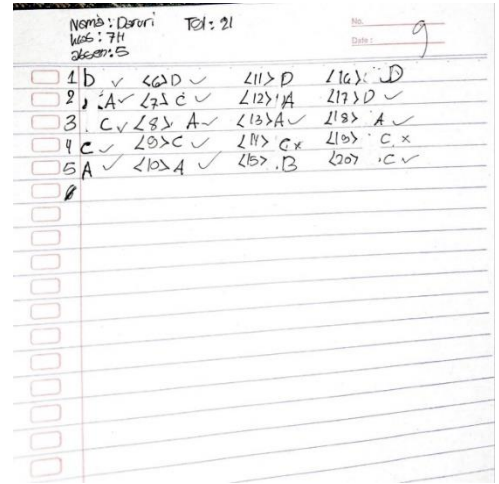 Nama: Daruri Tgl: 21 No.
kelas: 7H Date: 9
absen: 5
1 b ✓ <6> D ✓ <11> D <16>: D
2 . A ✓ <7> C ✓ <12> A <17> D ✓
3 . C ✓ <8> A ✓ <13> A ✓ <18> A ✓
4 C ✓ <9> C ✓ <14> C x <19> C x
5 A ✓ <10> A ✓ <15> . B <20> . C ✓